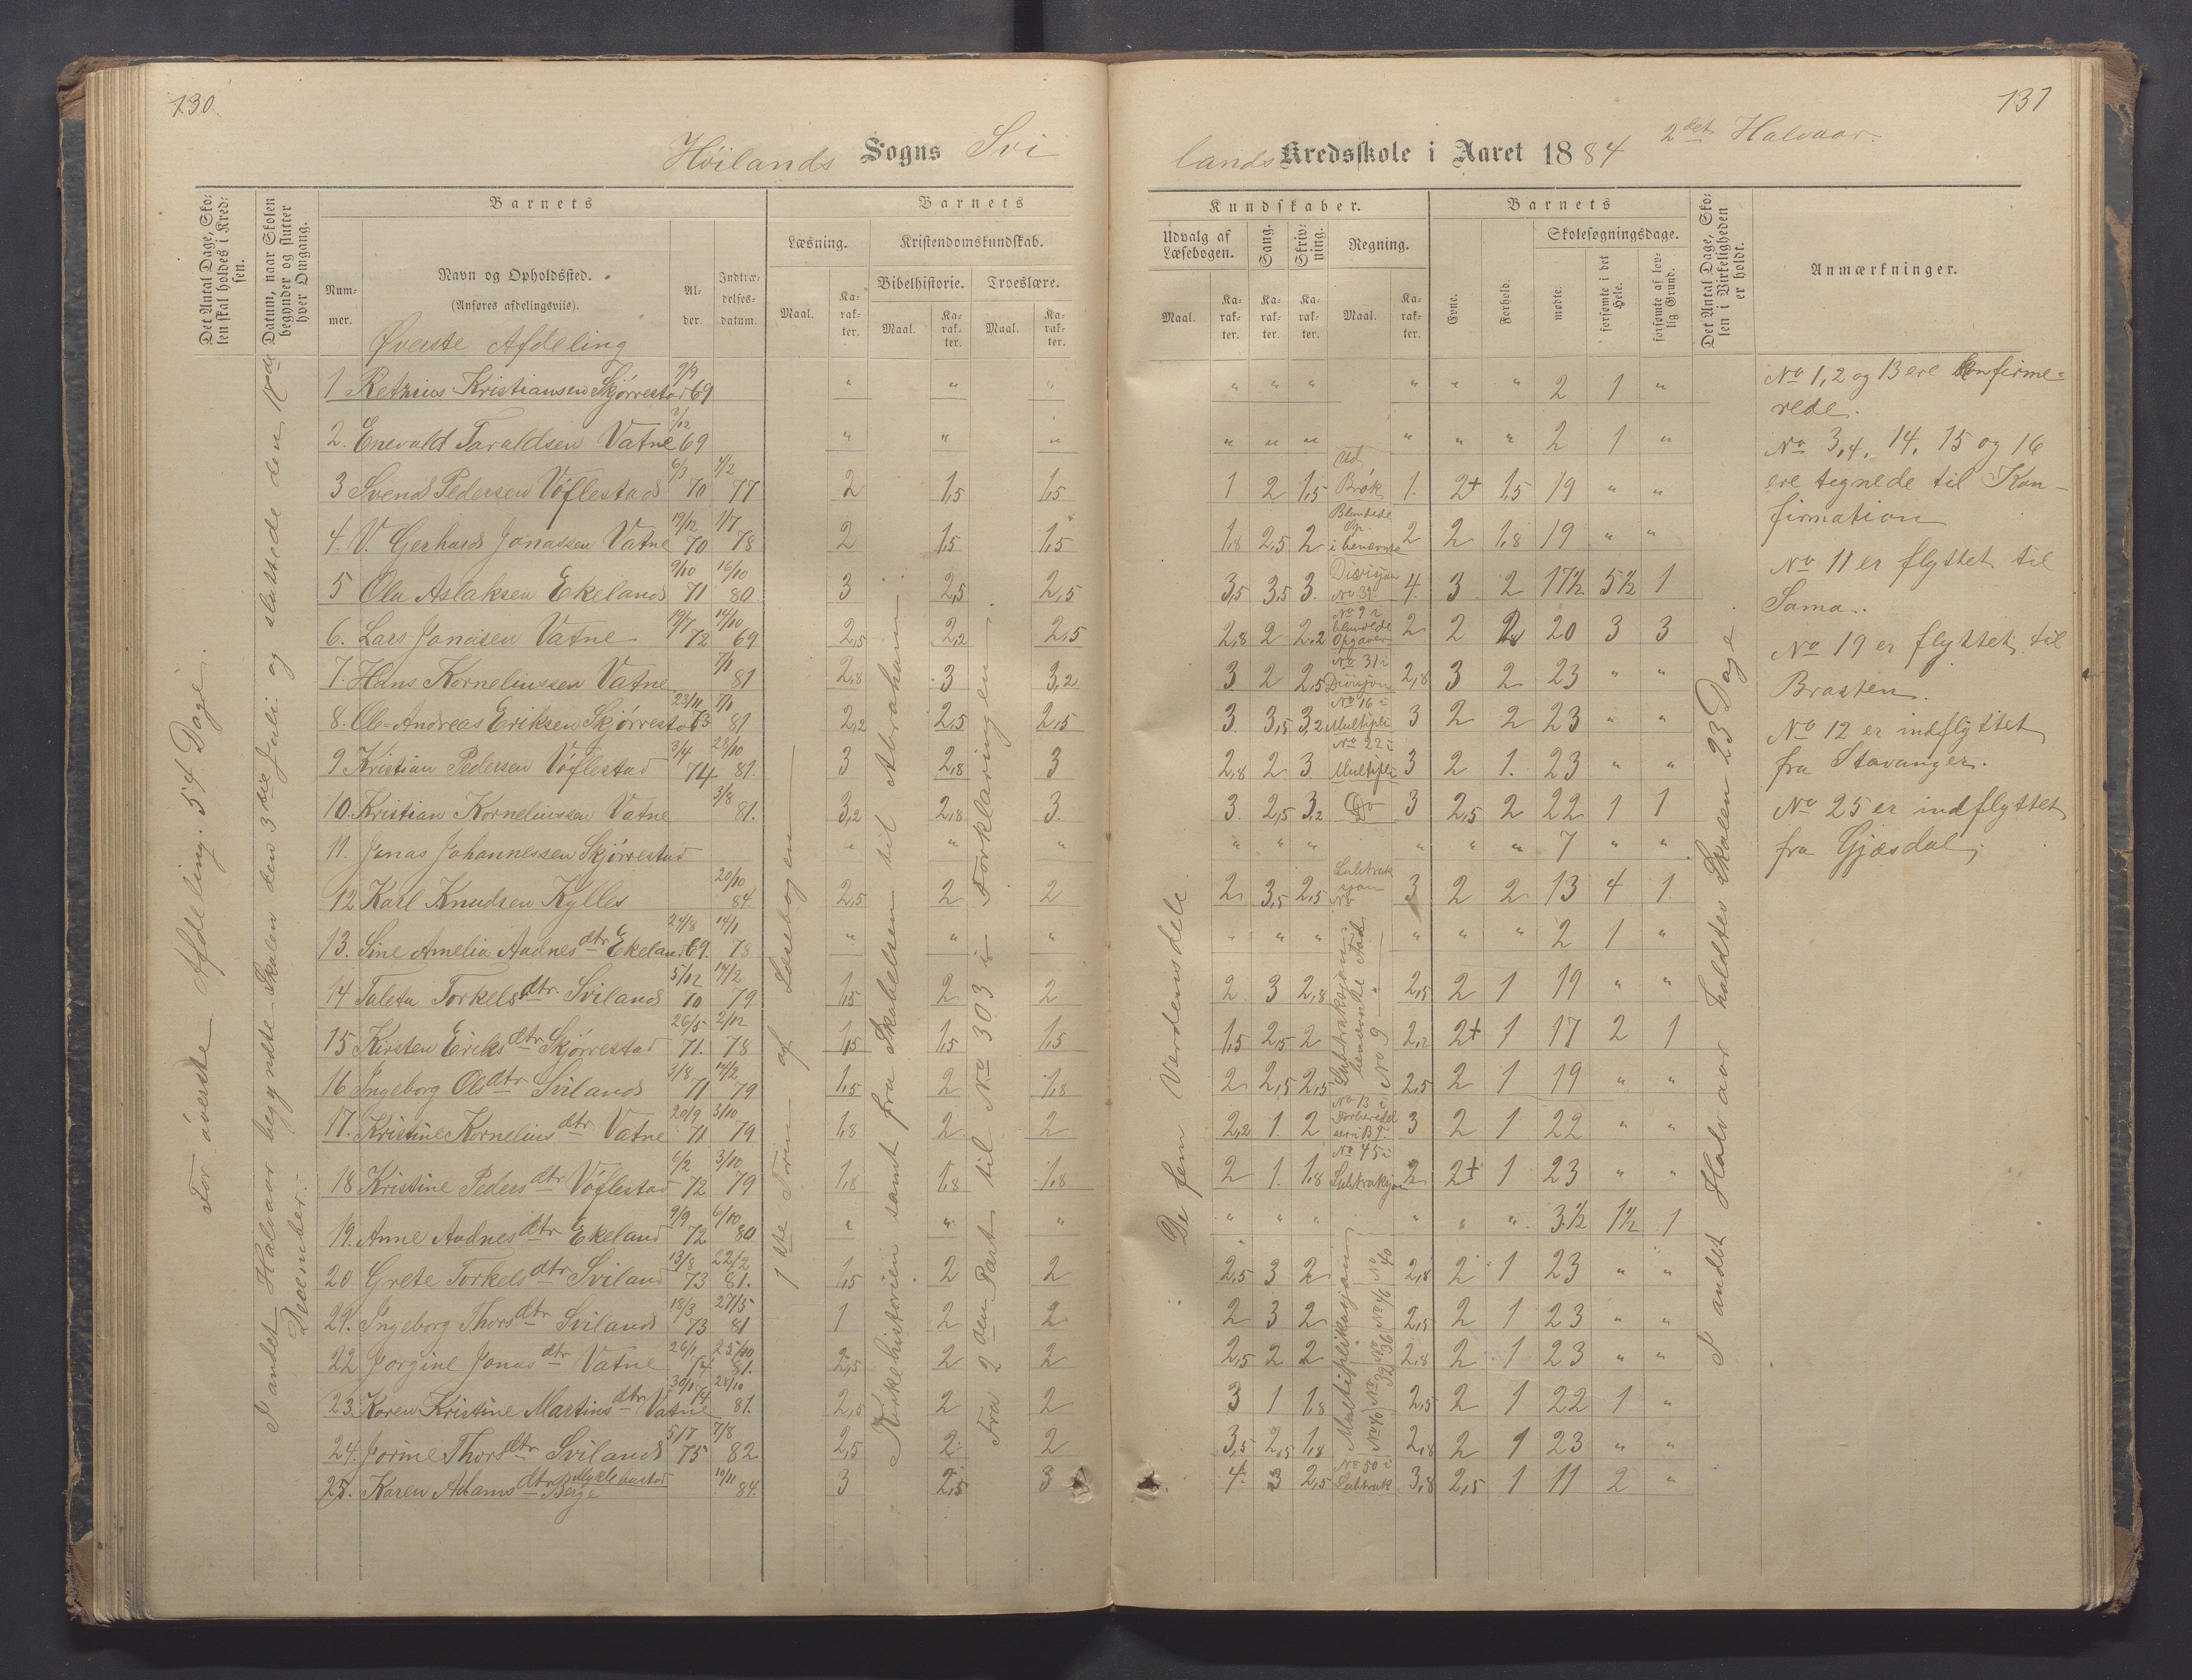 130.
137
Høilands Sogns Svi
lands Kredsskole i Aaret 1884 2det Halvaar.
Det Antal Dage, Skolen skal holdes i Kredsen.
Datum, naar Skolen begynder og slutter hver Omgang.
Barnets
Barnets
Kundskaber.
Barnets
Det Antal Dage, Skolen i Virkeligheden er holdt.
Anmærkninger.
Nummer.
Navn og Opholdssted.
(Anføres afdelingsviis).
Alder.
Indtrædelsesdatum.
Læsning.
Kristendomskundskab.
Bibelhistorie.
Troeslære.
Maal.
Karakter.
Maal.
Karakter.
Maal.
Karakter.
Udvalg af Læsebogen.
Sang.
Skrivning.
Regning.
Evne.
Forhold.
Skolesøgningsdage.
Maal.
Karakter.
Karakter.
Karakter.
Maal.
Karakter.
mødte.
forsømte i det Hele.
forsømte af lovlig Grund.
For øverste Afdeling. 54 Dage.
I andet Halvaar begyndte Skolen den 3die Juli og sluttede den 18de December.
1ste Trin af Læsebogen
Kirkehistorien samt fra Skabelsen til Abraham
Fra 2den Part til No 303 i Forklaringen.
De fem Verdensdele.
I andet Halvaar holdtes Skolen 23 Dage.
Øverste Afdeling
1 Kristiansen Skjørrestad 9/9 69 " " " " " " " " " 2 1 "
2. Enevald Taraldsen Vatne 7/12 69 " " " " " " " " " 2 1 "
3 Svend Pedersen Vøflestad 6/1 70 4/2 77 2 1,5 1,5 1 2 1,5 Ud Brøk 1. 2+ 1,5 19 " "
4. V. Gerhard Jonassen Vatne 19/12 70 1/7 78 2 1,5 1,5 1,8 2,5 2 Blandede Op. i benævnte 2 2 1,8 19 " "
5 Ola Aslaksen Ekeland 9/10 71 16/10 80 3 2,5 2,5 3,5 3,5 3. Division No 39 4. 3 2 17½ 5½ 1
6. Lars Jonasen Vatne 19/7 72 14/10 69 2,5 2,2 2,5 2,8 2 2,2 No 9 i blandede Opgaver 2 2 2 20 3 3
7. Hans Korneliussen Vatne 7/1 81 2,8 3 3,2 3 2 2,5 No 31 i Division 2,8 3 2 23 " "
8. Ole Andreas Eriksen Skjørrestad 23/11 73 7/1 81 2,2 2,5 2,5 3 3,5 3,2 No 16 i Multipli 3 2 2 23 " "
9 Kristian Pedersen Vøflestad 3/4 74 28/10 81. 3 2,8 3 2,8 2 3 No 22 i Multipli 3 2 1. 23 " "
10. Kristian Korneliussen Vatne 3/8 81. 3,2 2,8 3. 3. 2,5 3,2 Do 3 2,5 2 22 1 1
11. Jonas Johannessen Skjørrestad " " " " " " " " " 7 " "
12 Karl Knudsen Kylles 20/10 84. 2,5 2 2 2 3,5 2,5 Subtraksjon No 3 2 2 13 4 1
13. Sine Amelia Audnesdtr Ekeland 24/8 69. 14/1 78 " " " " " " " " " 2 1 "
14 Taleta Torkelsdtr. Sviland 5/12 70 14/2 79 1,5 2 2 2 3 2,8 2,5 2 1 19 " "
15 Kirsten Eriksdtr Skjørrestad 26/5 71. 2/12 78 1,5 1,5 1,5 1,5 2,5 2 2,2 2+ 1 17 2 1
16 Ingeborg Olsdtr Sviland 3/8 71 14/2 79 1,5 2 1,8 2 2,5 2,5 2,5 2 1 19 " "
Subtraksjon benævnte Tal No 9
17. Kristine Korneliusdtr Vatne 20/9 71 3/10 79 1,8 2 2 2,2 1. 2 No 13 i 3 2 1 22 " "
18 Kristine Pedersdtr Vøflestad 6/2 72 3/10 79 1,8 1,8 1,8 2 1. 1,8 No 45 i Subtraksjon 2 2+ 1 23 " "
19. Anne Audnesdtr Ekeland 9/9 72 6/10 80 " " " " " " " " " 3½ 1½ 1
20 Grete Torkelsdtr Sviland 13/8 73 22/2 81. 1,5 2 2 2,5 3 2 No 40 2,8 2 1 23 " "
21. Ingeborg Thorsdtr Sviland 18/3 73 27/5 81 1 2 2 2 3 2 No 46 2,5 2 1 23 " "
22 Jorgine Jonasdtr Vatne 26/1 74 25/10 81. 2,5 2 2 2,5 2 2 No 36 2,8 2 1 23 " "
23. Karen Kristine Martinsdtr Vatne 30/1 74 28/10 81. 2,5 2 2 3 1 1,8 No 32 2,5 2 1 22 1 "
24. Jorine Thorsdtr Sviland 5/7 75 7/8 82 2,5 2 2 3,5 2,5 1,8 No 46 2,8 2 1 23 " "
Multiplikasjon
25. Karen Adamsdtr Berge 10/11 84. 3 2,5 3 4. 3 2,5 No 50 i Subtrak 3,8 2,5 1 11 2 "
No 1, 2 og 13 ere konfirme-
rede.
No 3, 4, 14, 15 og 16
ere tegnede til Kon-
firmation
No 11 er flyttet til
Soma.
No 19 er flyttet til
Brasten.
No 12 er indflyttet
fra Stavanger.
No 25 er indflyttet
fra Gjæsdal.